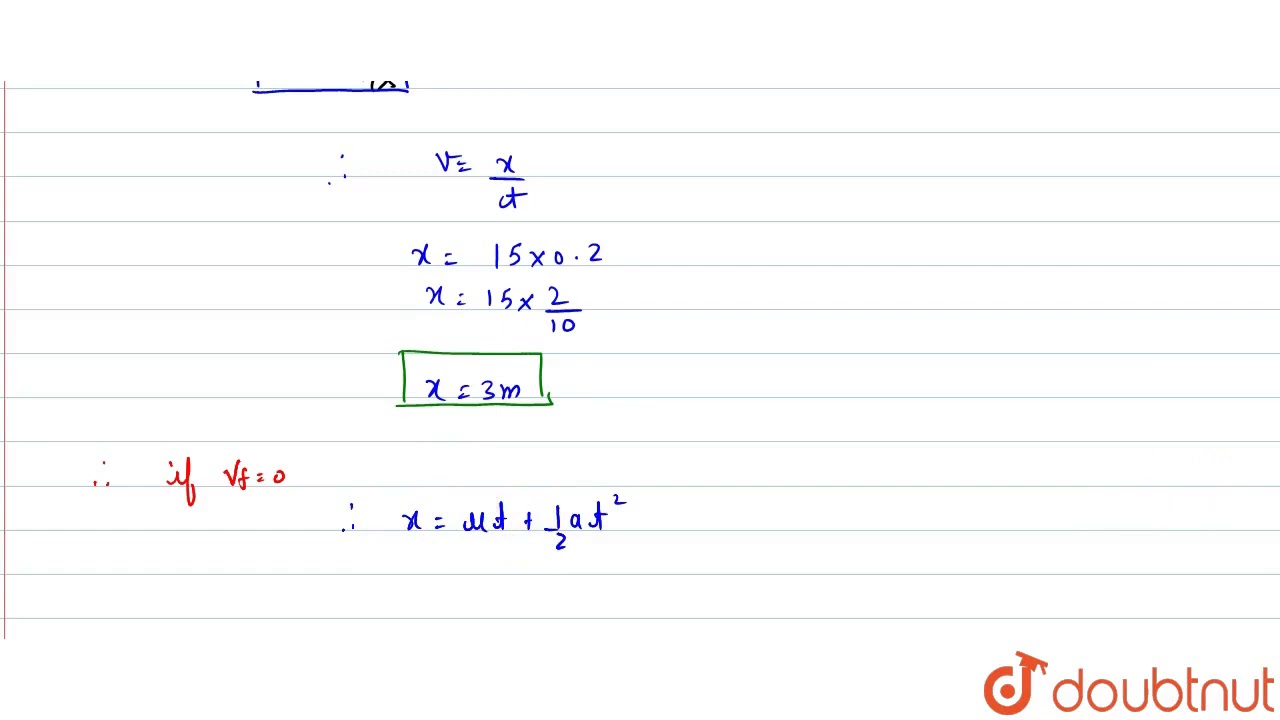 ∴ v = x/t
x = 15 × 0.2
x = 15 × 2/10
x = 3m
∴ if Vf = 0
∴ x = ut + 1/2 at²
doubtnut